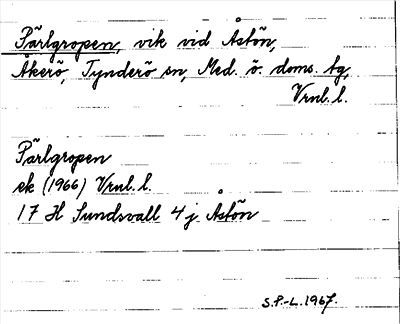 Pärlgropen, vik vid Åstön,
Åkerö, Tynderö sn, Med. ö. doms. tg,
Vrnl. l.
Pärlgropen
ek (1966) Vrnl. l.
17 H Sundsvall 4 j Åstön
S.P.-L. 1967.